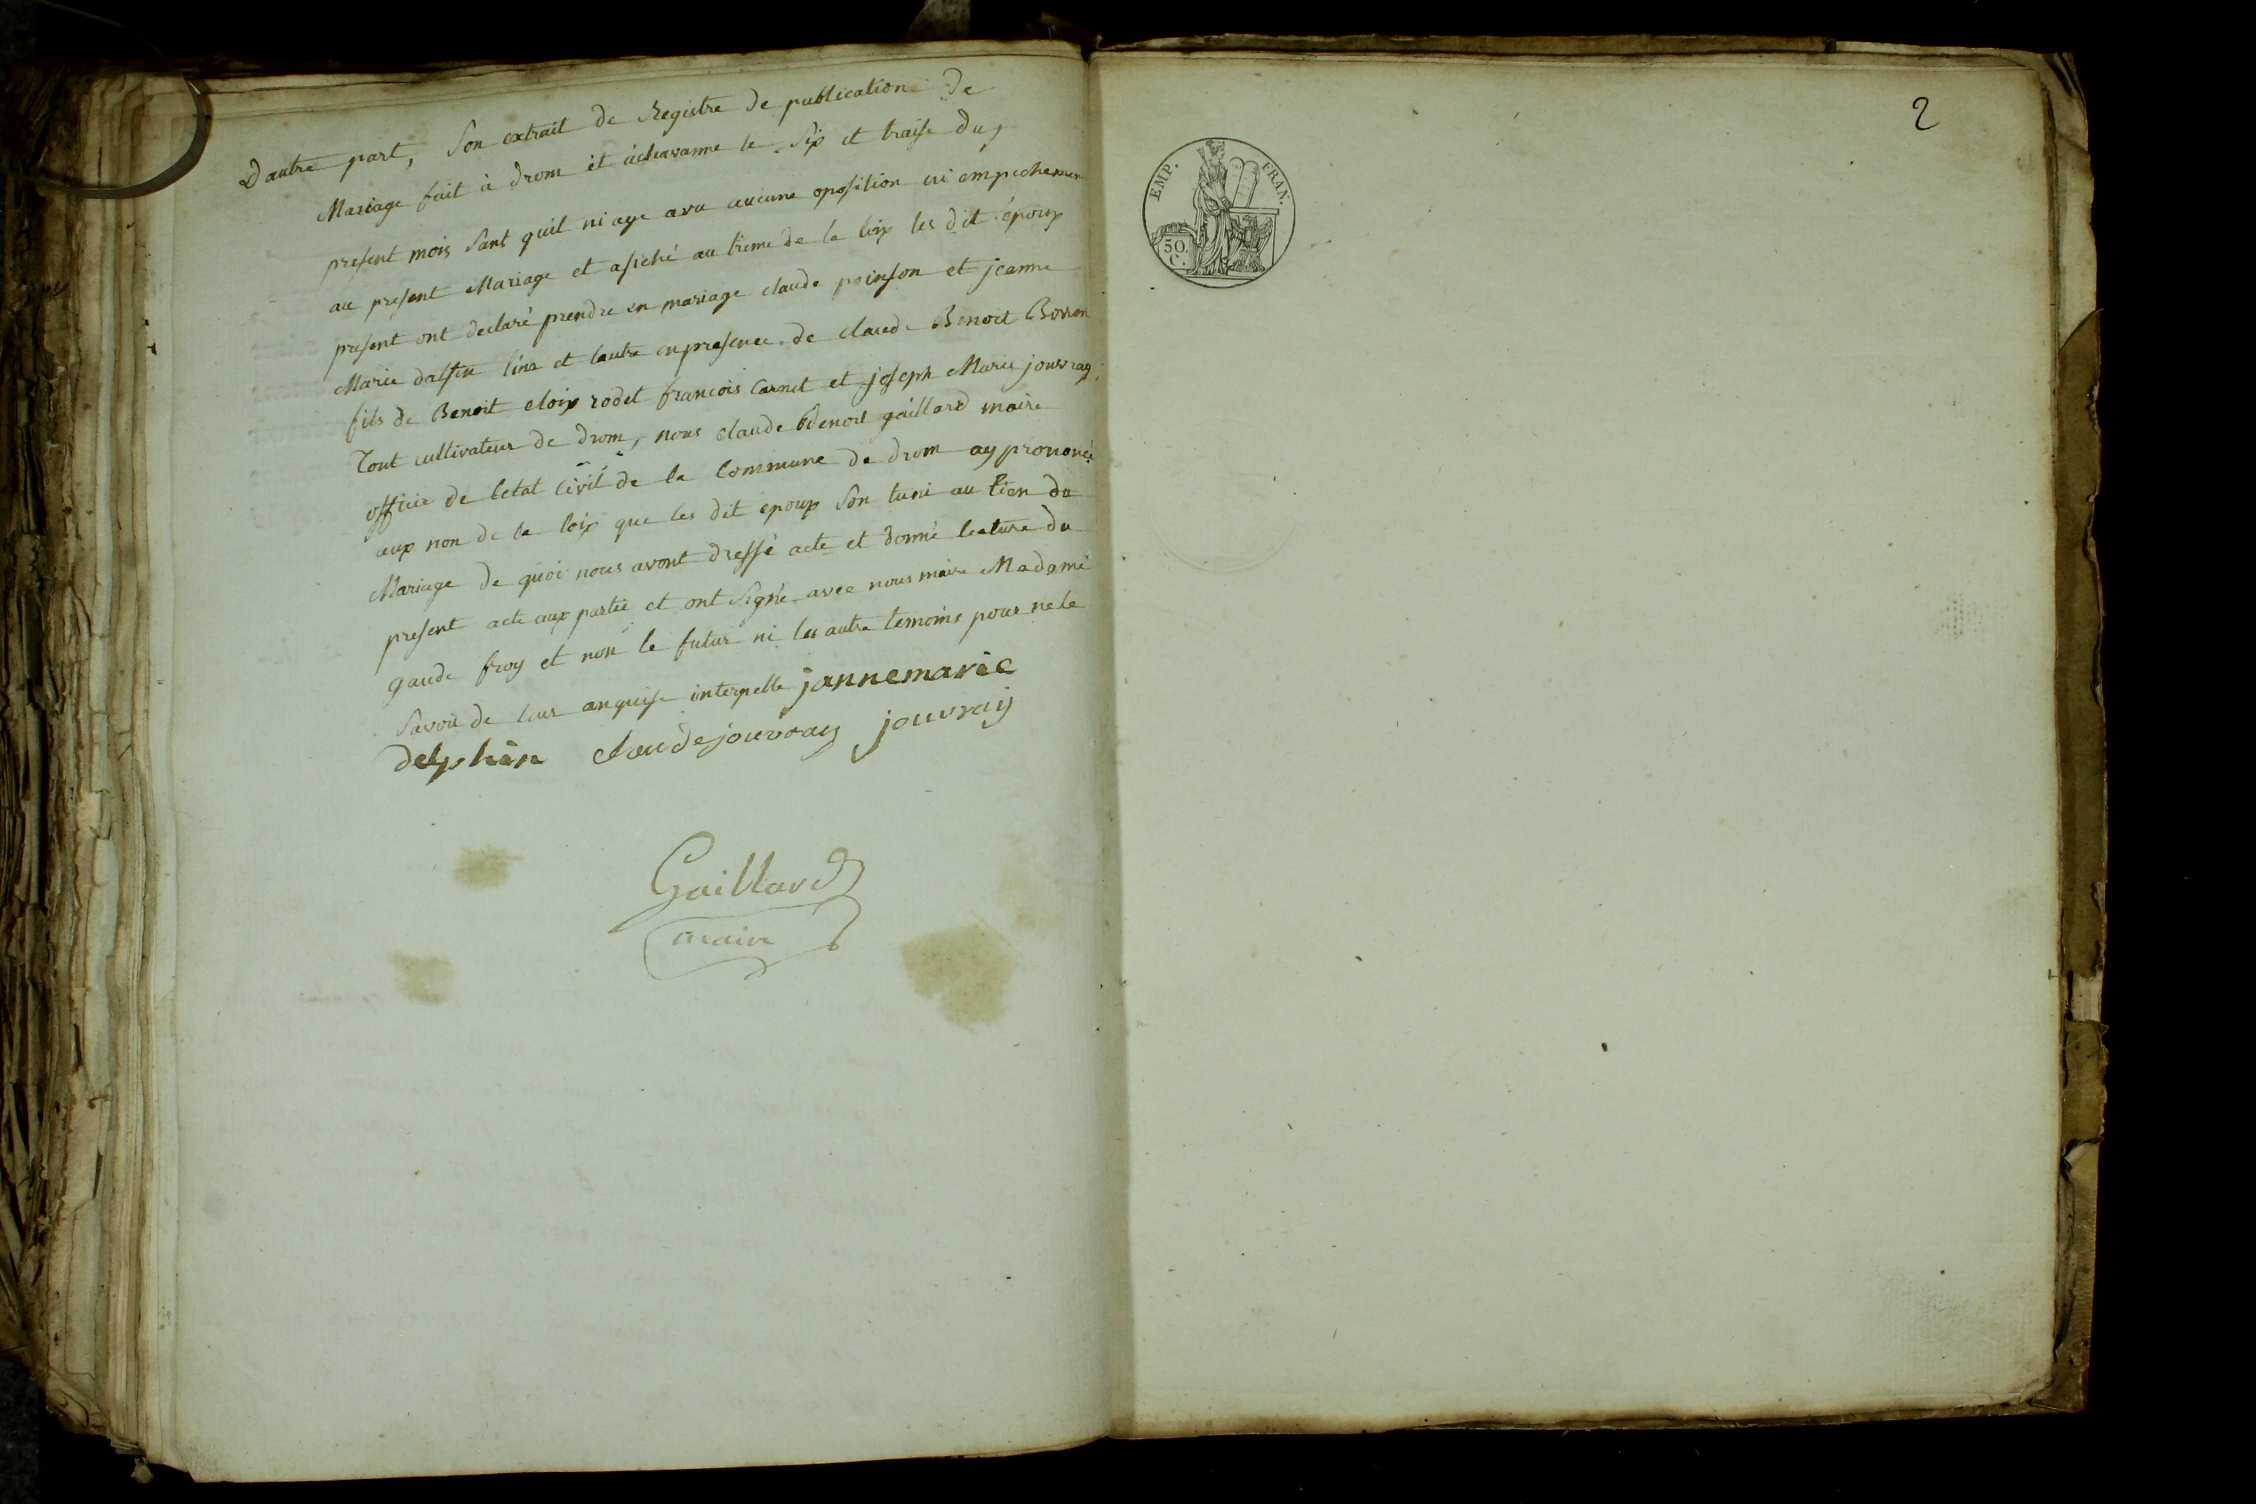 D'autre part, Son extrait de Registre de publication de
Mariage fait à drom et a cheavanne le Six et traise du
present mois Sant quil ni aye avu aucune oposition ni empechement
au present Mariage et afiché au treme de la loix les dit époux
present ont declaré prendre en mariage claude poinson et jeanne
Marie dalfin l'une et lautre enpresence de claude Benoit Borron
fils de Benoit eloix rodet francois Carnet et joseph Marie jouvray
Tout cultivateur de drom, nous claude Benoit gaillard maire
officie de letat Civil de la Commune de drom ay prononcé
aux non de la loix que les dit époux Son tuni au lien du
Mariage de quoi nous avont dressé acte et donné lecture du
present acte aux partie et ont Signé avec nous maire Madame
gaude froy et non le futur ni les autre temoins pour ne le
Savoir de leur anquise interpelle jannemarie
delphin claudejouvray jouvray
Gaillard
maire
2
EMP. FRAN.
50.
C.